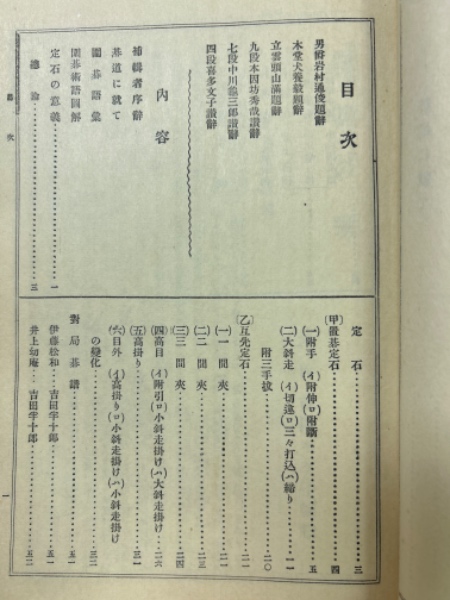 目次
男爵岩村通俊題辭
木堂犬養毅題辭
立雲頭山滿題辭
九段本因坊秀哉讃辭
七段中川龜三郎讃辭
四段喜多文子讃辭
內容
補輯者序辭
碁道に就て
圍碁語彙
圍碁術語圖解
定石の意義………一
總論………三
定石………三
(甲)置碁定石………四
(一)附手 (イ)附伸(ロ)附斷………五
(二)大斜走 (イ)切違(ロ)三々打込(ハ)締り………一一
附三手拔………二〇
(乙)互先定石………二一
(一)一間夾………二一
(二)二間夾………二三
(三)三間夾………二四
(四)高目 (イ)附引(ロ)小斜走掛け(ハ)大斜走掛け………二六
(五)高掛り………三一
(六)目外 (イ)高掛り(ロ)小斜走掛け(ハ)小斜走掛け
の變化………三二
對局碁譜………五一
伊藤松和 吉田半十郎………五一
井上幼庵 吉田半十郎………五二
目次
一